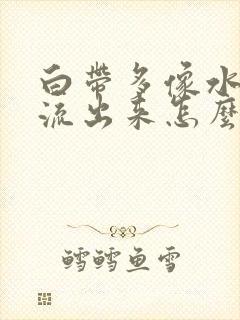 白帶多像水
流出来怎麼
鳕鳕鱼雪